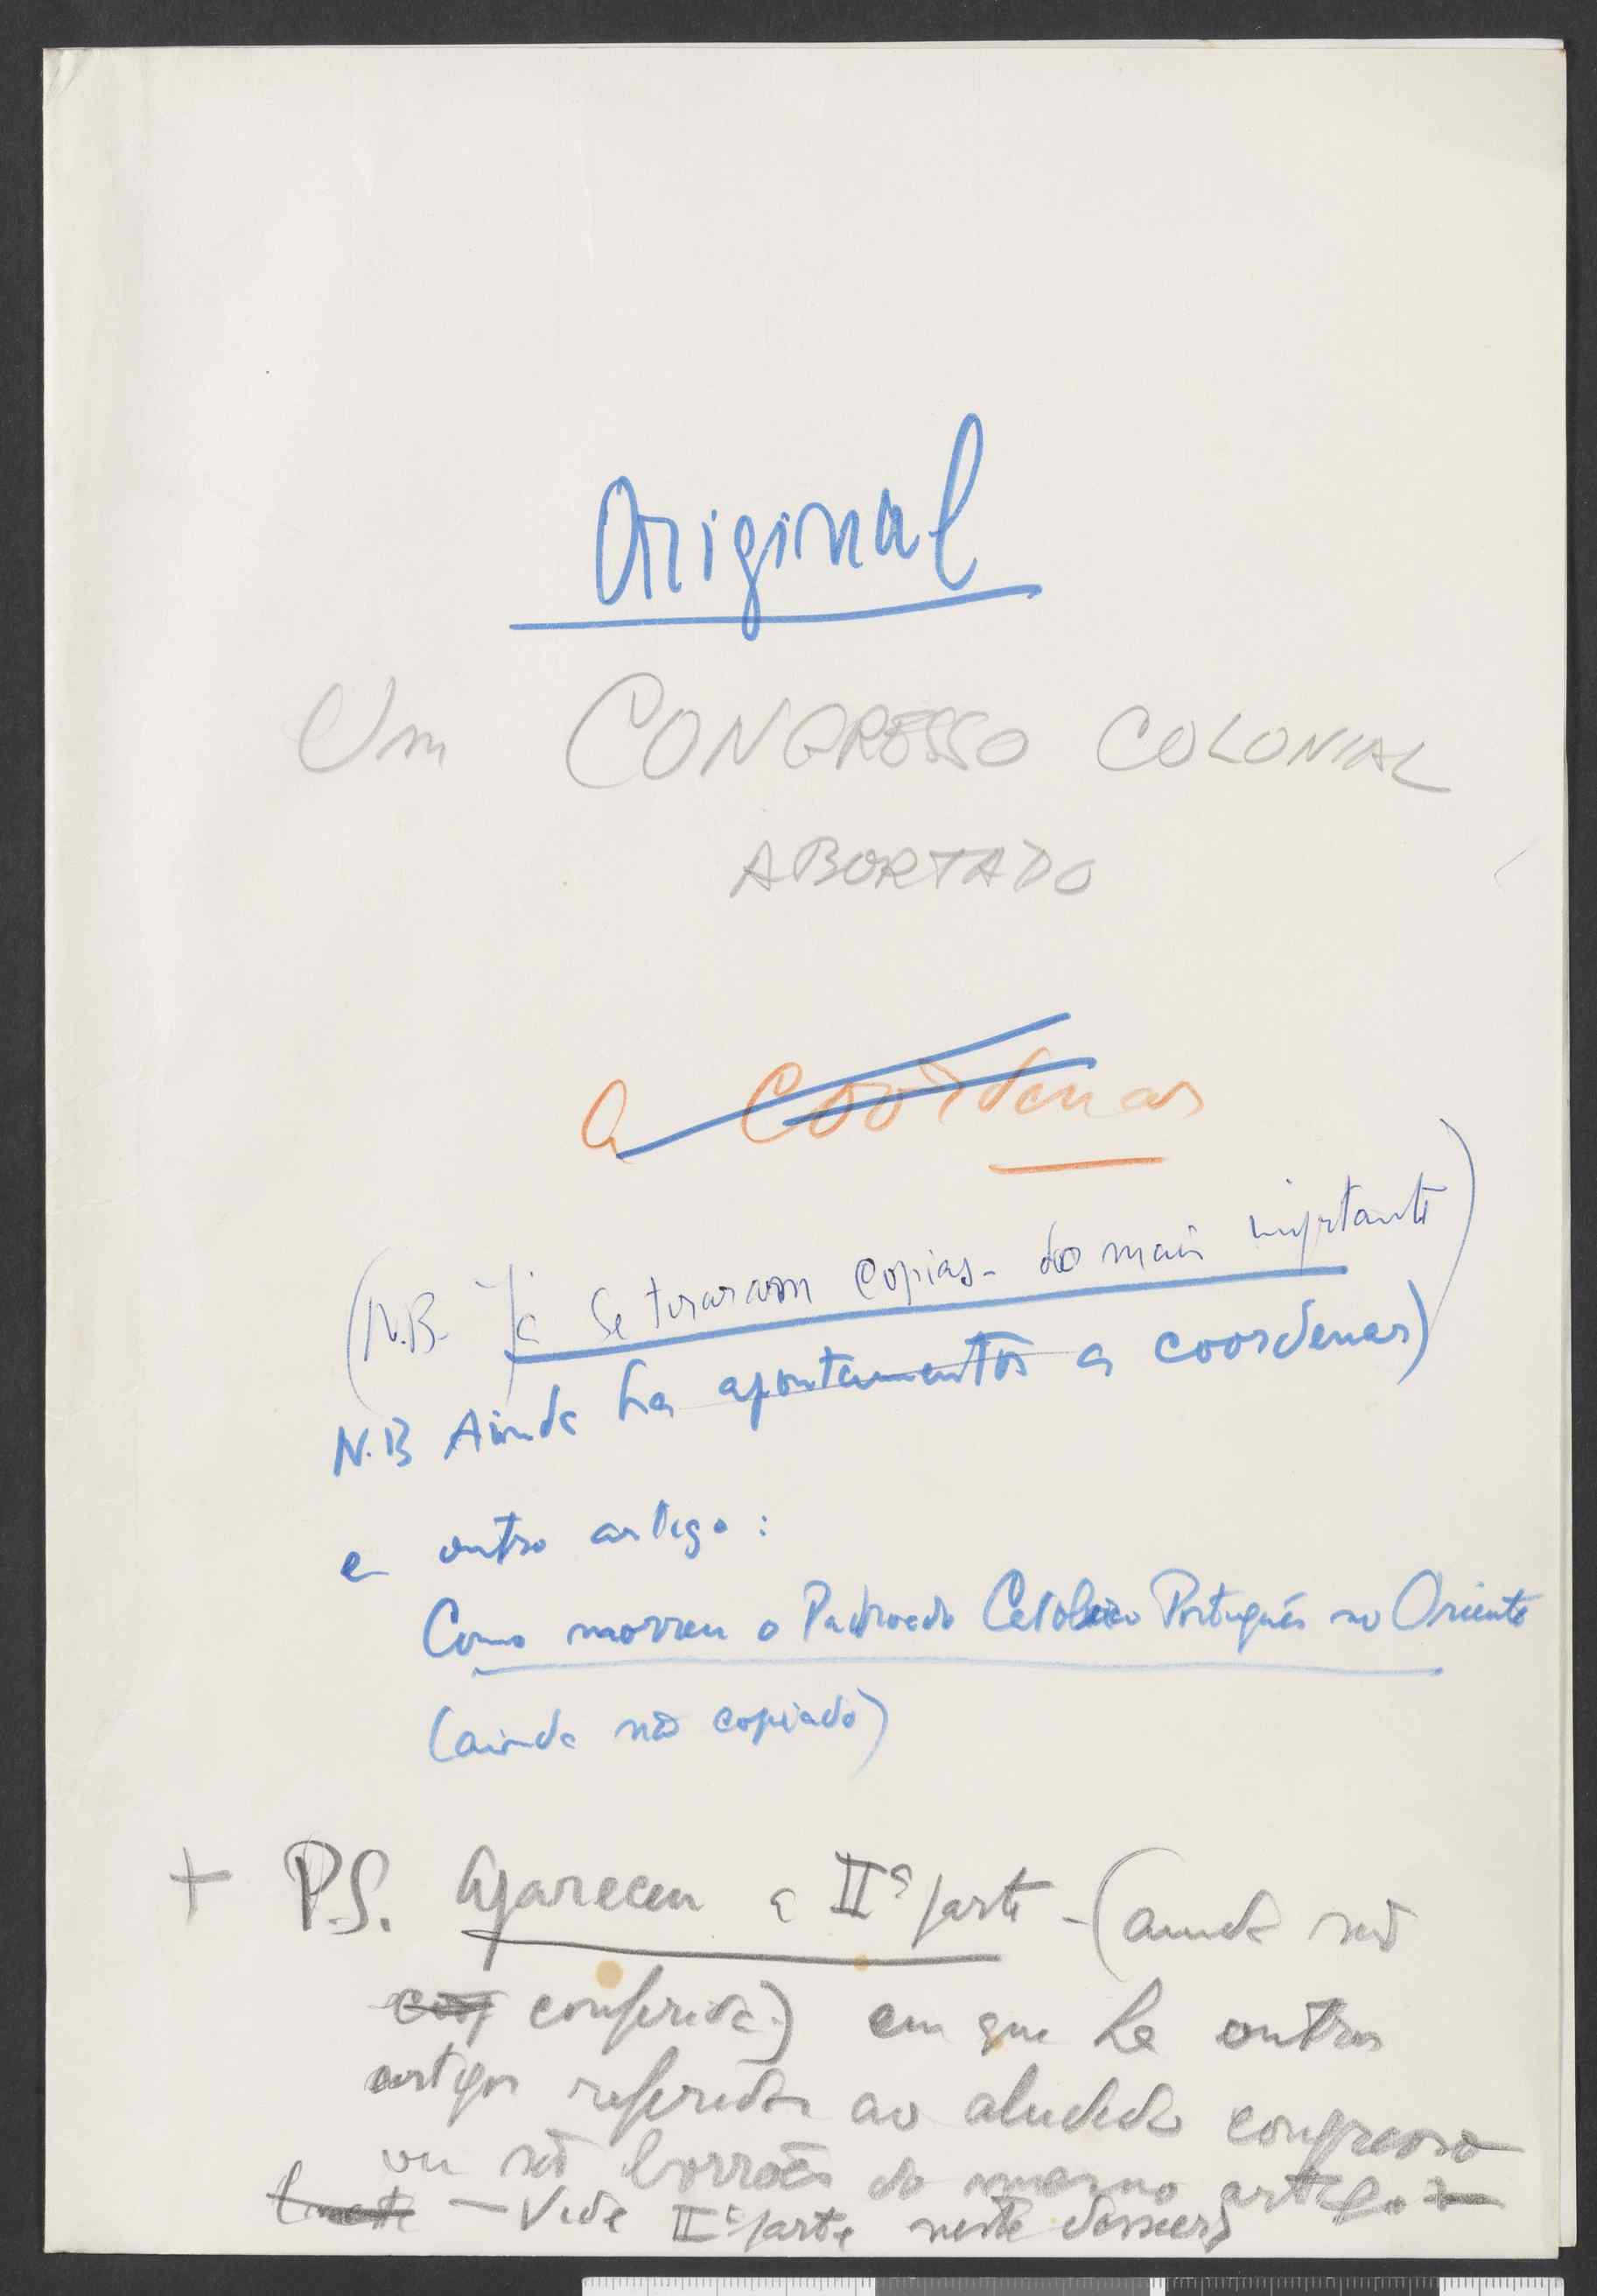 Original
Um CONGRESSO COLONIAL
ABORTADO
a coordenar
(N.B. Já se tiraram copias - do mais importante)
N.B Ainda ha apontamentos a coordenar)
e outro artigo:
Como morreu o Padroado Catolico Português no Oriente
(ainda não copiado)
+ P.S. Apareceu a IIª parte - (ainda não
conferida) em que ha outros
artigos referidos ao aludido congresso
ou são borrões do mesmo artigo
- Vide IIª parte neste dossier)